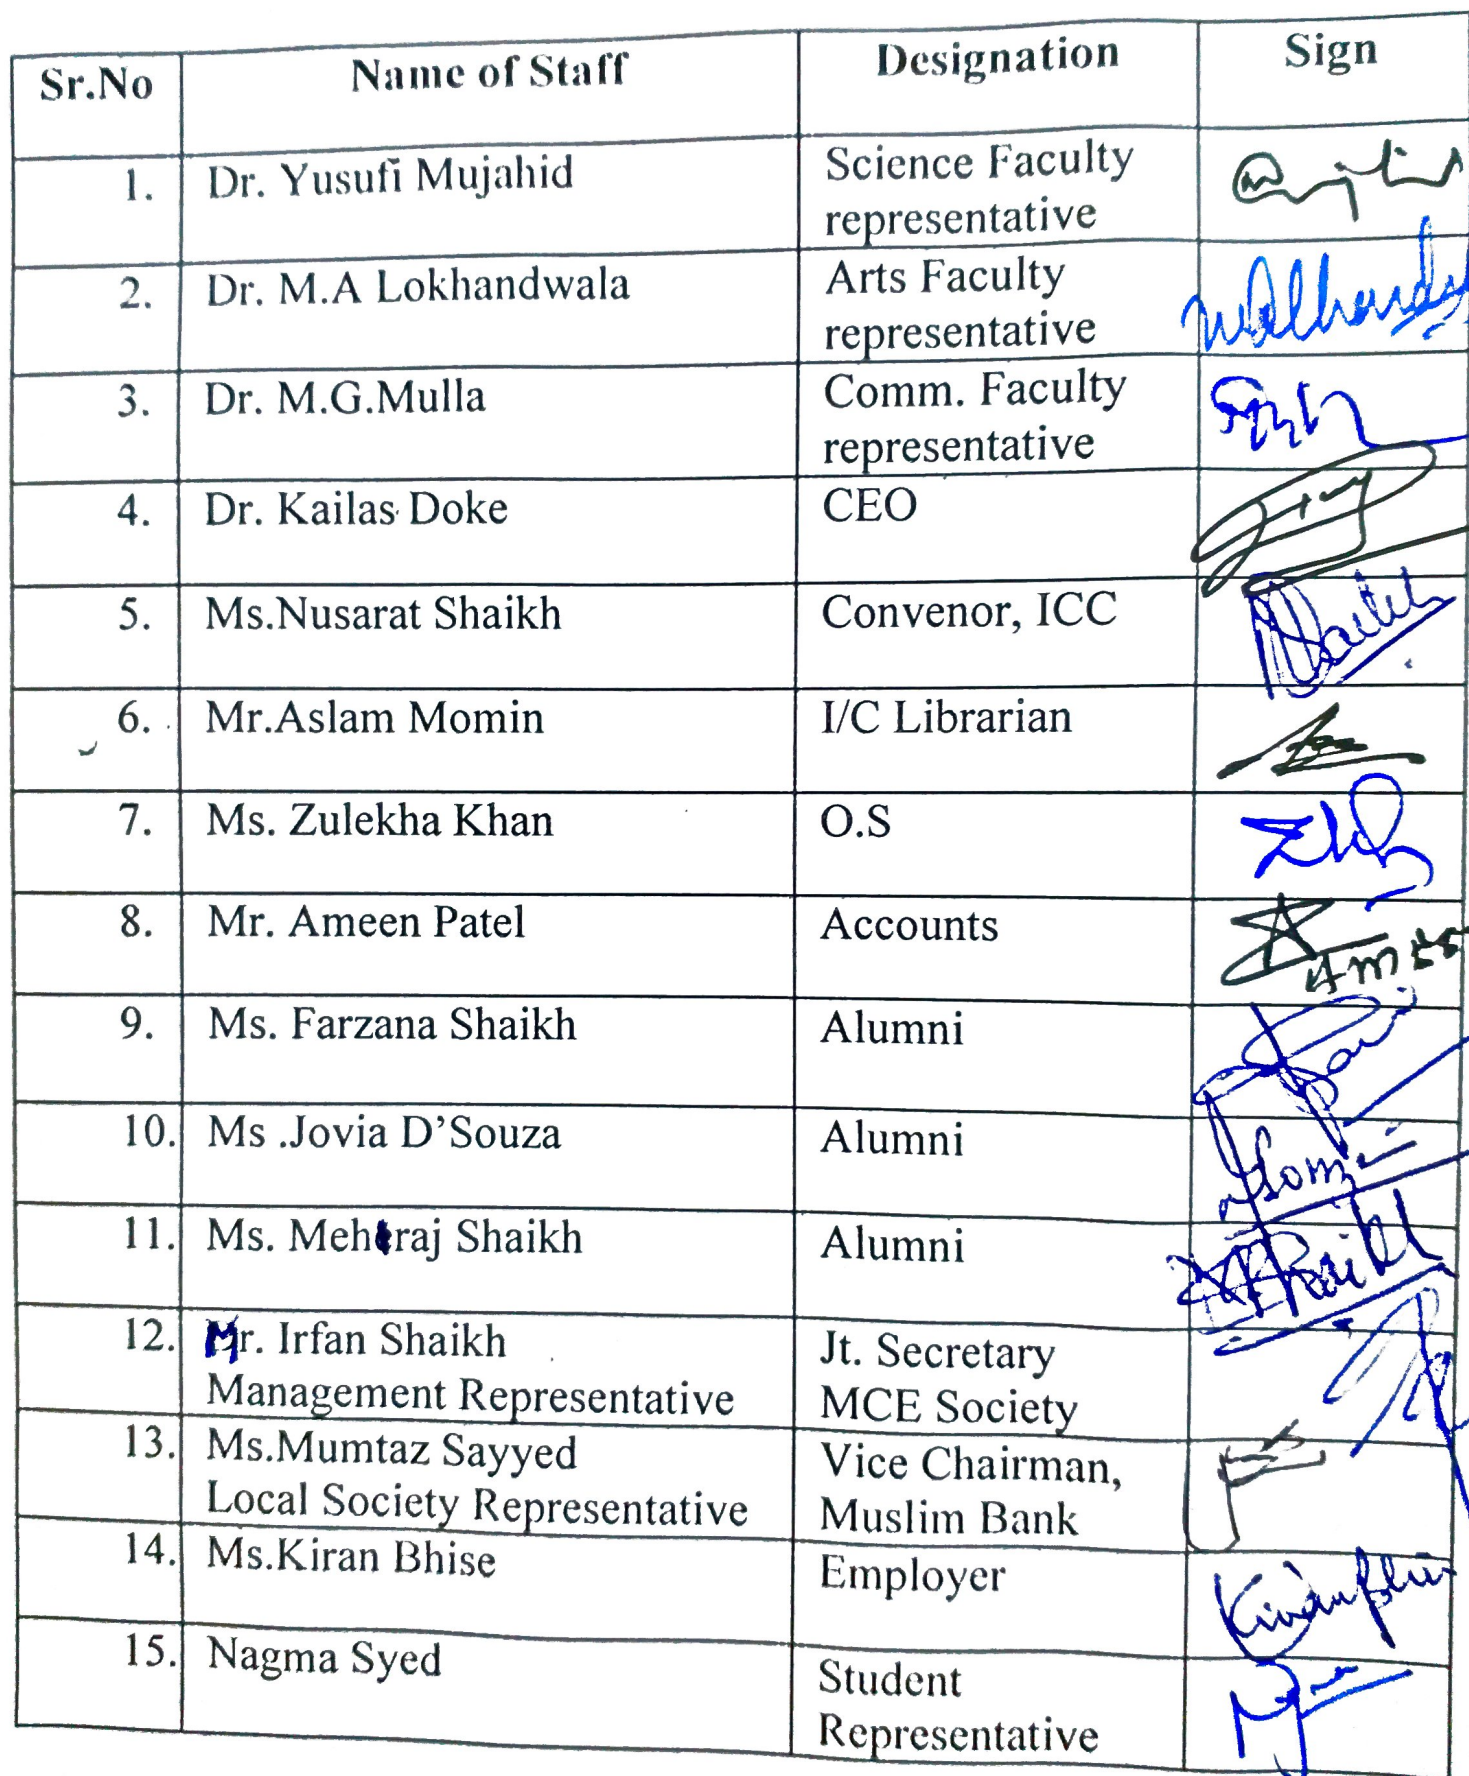 Sr.No Name of Staff Designation Sign
1. Dr. Yusufi Mujahid Science Faculty
representative
2. Dr. M.A Lokhandwala Arts Faculty
representative
3. Dr. M.G.Mulla Comm. Faculty
representative
4. Dr. Kailas Doke CEO
5. Ms.Nusarat Shaikh Convenor, ICC
6. Mr.Aslam Momin I/C Librarian
7. Ms. Zulekha Khan O.S
8. Mr. Ameen Patel Accounts
9. Ms. Farzana Shaikh Alumni
10. Ms .Jovia D’Souza Alumni
11. Ms. Mehraj Shaikh Alumni
12. Mr. Irfan Shaikh Jt. Secretary
Management Representative MCE Society
13. Ms.Mumtaz Sayyed Vice Chairman,
Local Society Representative Muslim Bank
14. Ms.Kiran Bhise Employer
15. Nagma Syed Student
Representative